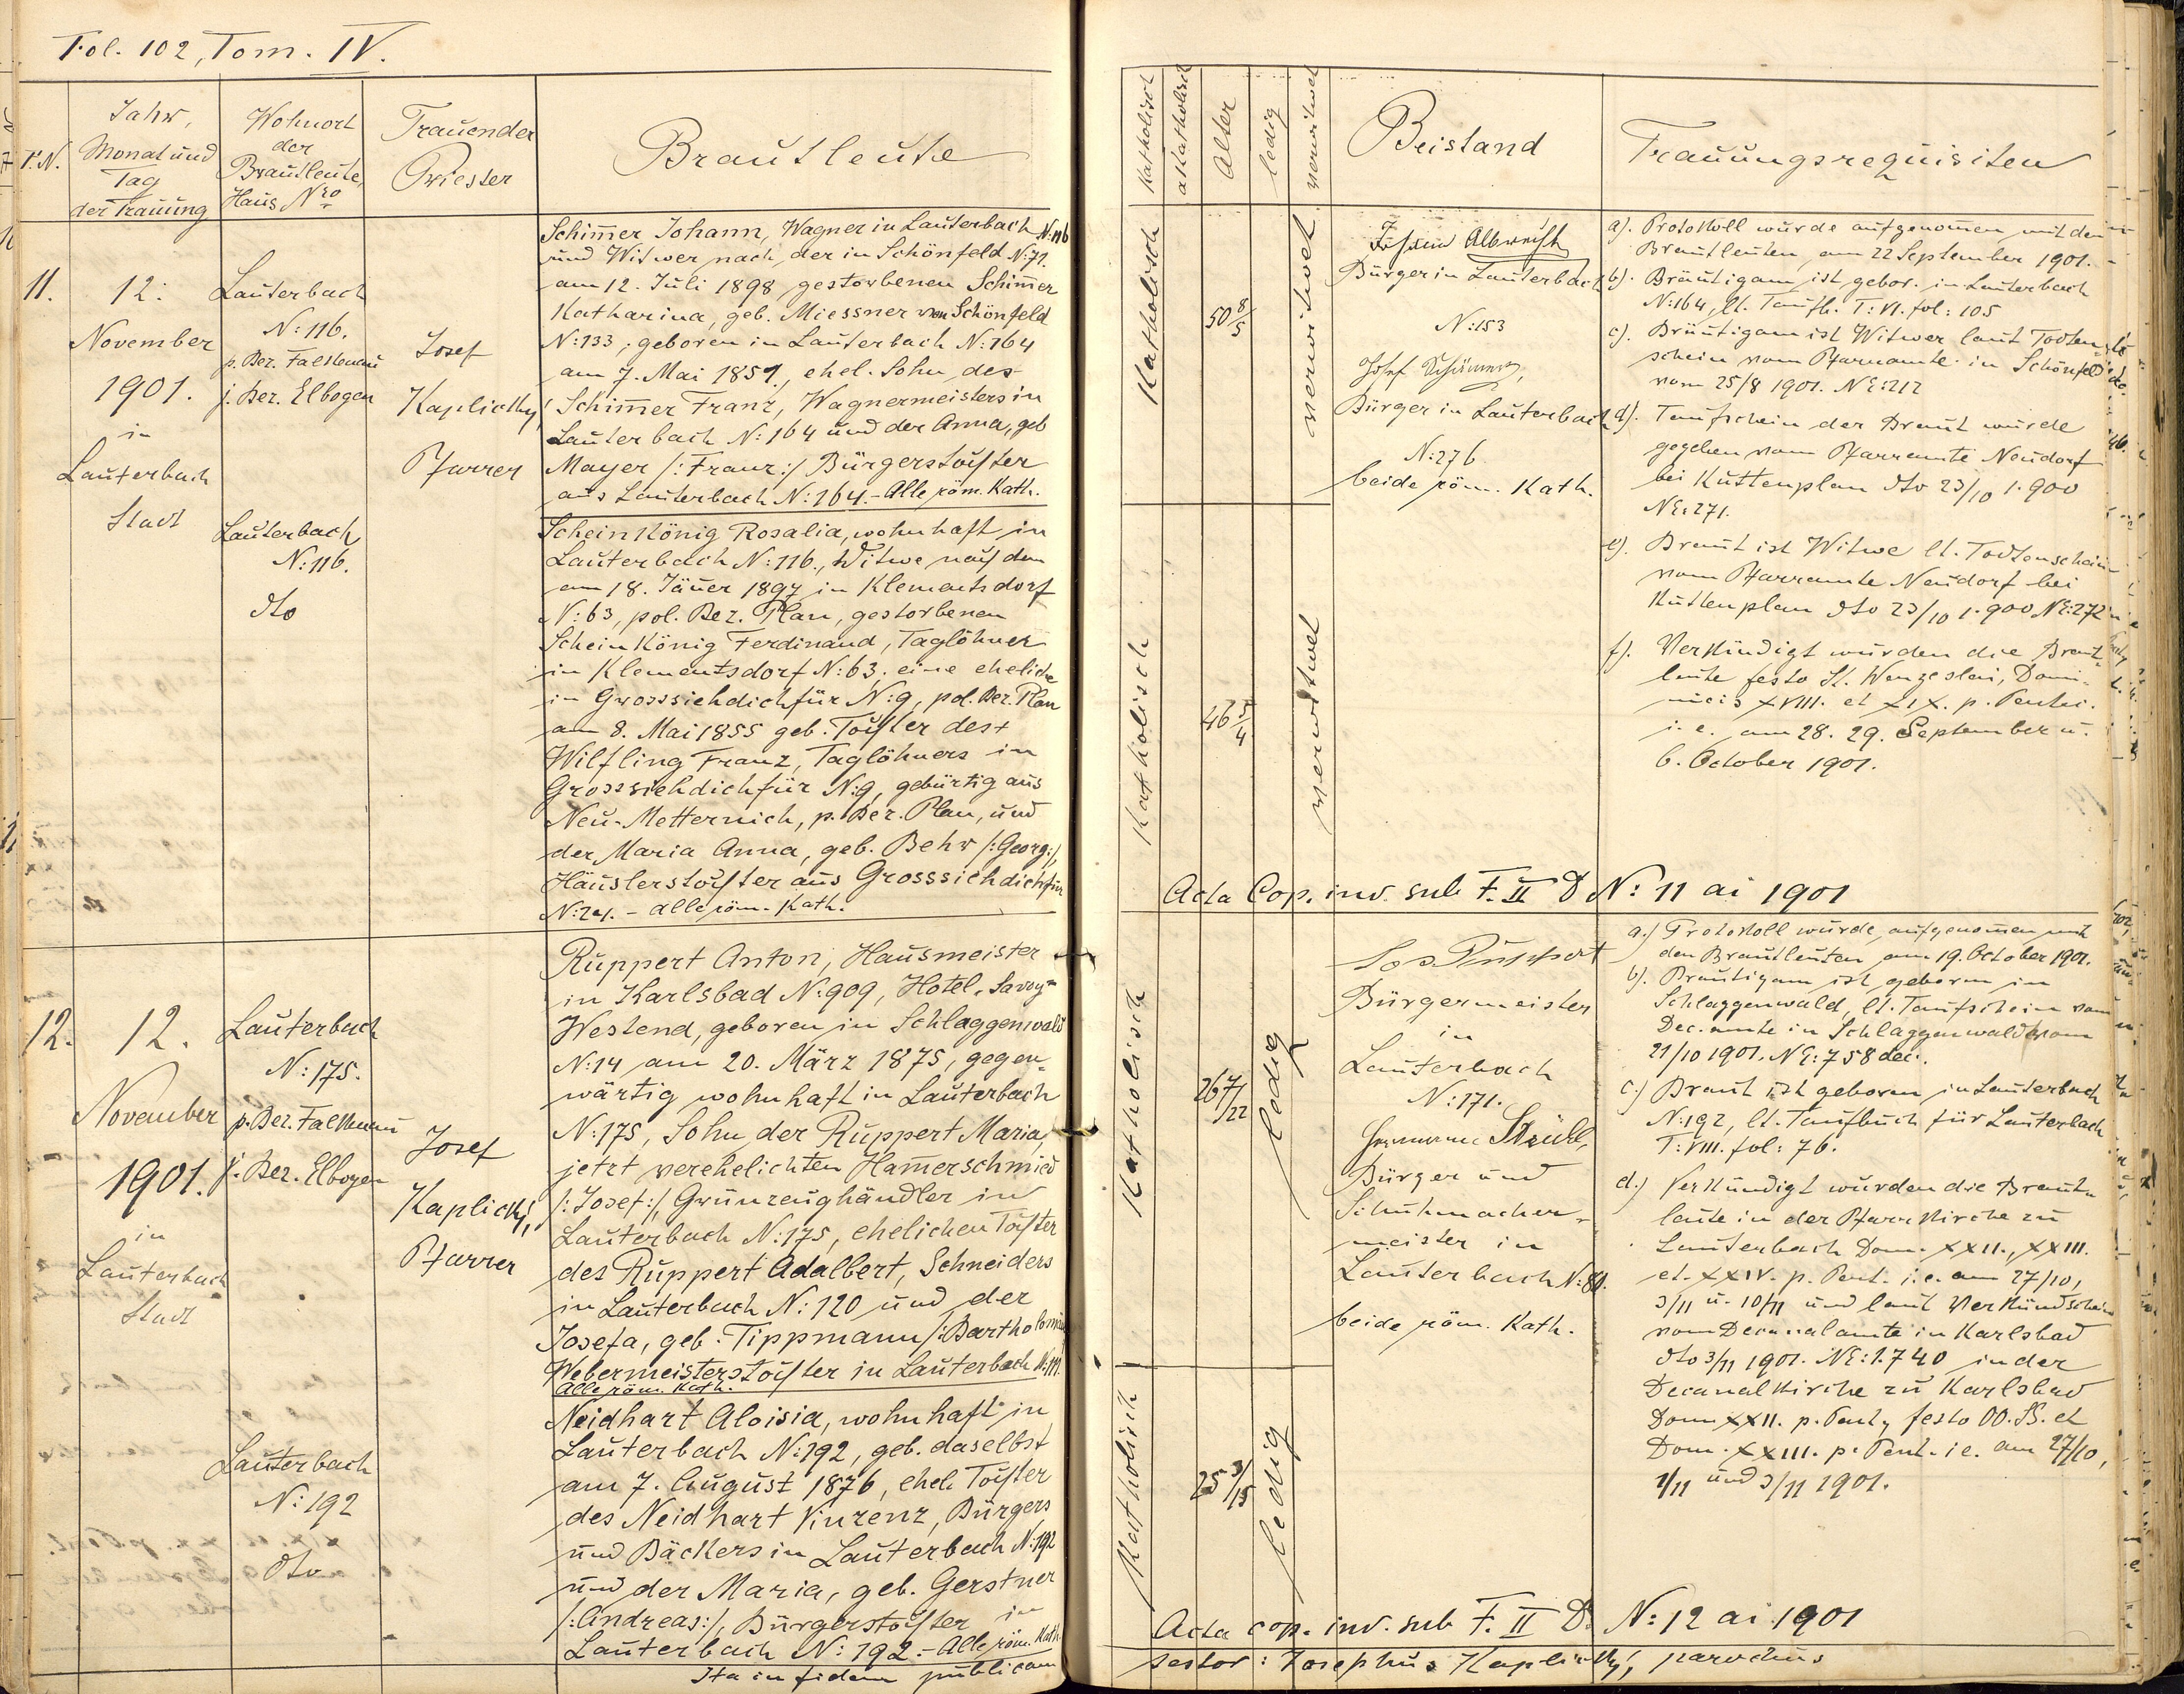 Fol. 102, Tom. IV.
T.N.
Jahr,
Monat und
Tag
der Trauung
Wohnort
der
Brautleute,
Haus Nro
Trauender
Priester
Brautleute
11.
12.
November
1901.
in
Lauterbach
Stadt
Lauterbach
N: 116.
p. Bez. Falkenau
j. Bez. Elbogen
Lauterbach
N: 116.
dto
Josef
Kaplický,
Pfarrer
Schim̄er Johann, Wagner in Lauterbach N: 116
und Witwer nach der in Schönfeld N: 71.
am 12. Juli 1898 gestorbenen Schim̄er
Katharina, geb. Miessner von Schönfeld
N: 133; geboren in Lauterbach N: 164
am 7. Mai 1851., ehel. Sohn des
Schim̄er Franz, Wagnermeisters in
Lauterbach N: 164 und der Anna, geb
Mayer /:Franz:/ Bürgerstochter
aus Lauterbach N: 164. - Alle röm. Kath.
Scheinkönig Rosalia, wohnhaft in
Lauterbach N: 116., Witwe nach dem
am 18. Jäner 1897 in Klementsdorf
N: 63, pol. Bez. Plan, gestorbenen
Scheinkönig Ferdinand, Taglöhner
in Klementsdorf N: 63, eine eheliche
in Grosssichdichfür N: 9, pol. Bez. Plan
am 8. Mai 1855 geb. Tochter des +
Wilfling Franz, Taglöhners in
Grosssichdichfür N: 9, gebürtig aus
Neu-Metternich, p. Bez. Plan, und
der Maria Anna, geb. Behr /:Georg:/,
Häuslerstochter aus Grosssichdichfür
- Alle röm. Kath.
12.
12.
November
1901.
in
Lauterbach
Stadt
Lauterbach
N: 175.
p. Bez. Falkenau
j. Bez. Elbogen
Lauterbach
N: 192
dto
Josef
Kaplický,
Pfarrer
Ruppert Anton, Hausmeister
in Karlsbad N: 909, Hotel „Savoy"
Westend, geboren in Schlaggenwald
N: 14 am 20. März 1875, gegen-
wärtig wohnhaft in Lauterbach
N: 175, Sohn der Ruppert Maria,
jetzt verehelichten Ham̄erschmied
/:Josef:/, Grünzeughändler in
Lauterbach N: 175, ehelichen Tochter
des Ruppert Adalbert, Schneiders
in Lauterbach N: 120 und der
Josefa, geb. Tippmann /:Bartholomäus
Webermeisterstochter in Lauterbach N: 111.
Alle röm. Kath.
Neidhart Aloisia, wohnhaft in
Lauterbach N: 192, geb. daselbst
am 7. August 1876, ehel. Tochter
des Neidhart Vinzenz, Bürgers
und Bäckers in Lauterbach N: 192
und der Maria, geb. Gerstner
/:Andreas:/, Bürgerstochter in
Lauterbach N: 192. - Alle röm. Kath.
Ita in fidem publicam
Katholisch
akatholisch
Alter
ledig
verwitwet
Beistand
Trauungsrequisiten
Katholisch
50 8/5
verwitwet
Katholisch
46 5/4
verwitwet
Albrecht
Bürger in Lauterbach
N: 153
Josef Schimmer,
Bürger in Lauterbach
N: 276
beide röm. Kath.
a). Protokoll wurde aufgenom̄en mit den
Brautleuten am 22 September 1901.
b). Bräutigam ist gebor. in Lauterbach
N: 164, lt. Taufb. T: VI. fol: 105
c). Bräutigam ist Witwer laut Todten-
schein vom Pfarramte in Schönfeld
vom 25/8 1901. NE: 212
d). Taufschein der Braut wurde
gegeben vom Pfarramte Neudorf
bei Kuttenplan dto 23/10 1.900
NE: 271.
e). Braut ist Witwe lt. Todtenschein
vom Pfarramte Neudorf bei
Kuttenplan dto 23/10 1.900 NE: 272
f). Verkündigt wurden die Braut-
leute festo St. Wenzeslai, Domi-
nicis XVIII. et XIX. p. Pentec.
i. e. am 28. 29. September u.
6. October 1901.
Acta Cop. inv. sub F. II D N: 11 ai 1901
Katholisch
26 7/22
ledig
Katholisch
25 3/15
ledig
Jos Puschert
Bürgermeister
in
Lauterbach
N: 171.
Hermann Stückl,
Bürger und
Schuhmacher-
meister in
Lauterbach N: 80.
beide röm. Kath.
a.) Protokoll wurde aufgenom̄en mit
den Brautleuten am 19. October 1901.
b). Bräutigam ist geboren in
Schlaggenwald, lt. Taufschein vom
Dec.amte in Schlaggenwald vom
21/10 1901. NE: 758 dec.
c.) Braut ist geboren in Lauterbach
N: 192, lt. Taufbuch für Lauterbach
T: VIII. fol: 76.
d.) Verkündigt wurden die Braut-
leute in der Pfarrkirche zu
Lauterbach Dom. XXII., XXIII.
et. XXIV. p. Pent. i. e. am 27/10,
3/11 u. 10/11 und laut Verkündschein
vom Decanalamte in Karlsbad
dto 3/11 1901. NE: 1.740 in der
Decanalkirche zu Karlsbad
Dom XXII. p. Pent, festo OO. SS. et
Dom. XXIII. p. Pent. i e. am 27/10,
1/11 und 3/11 1901.
Acta cop. inv. sub F. II D. N: 12 ai 1901
testor: Josephus Kaplický, parochus